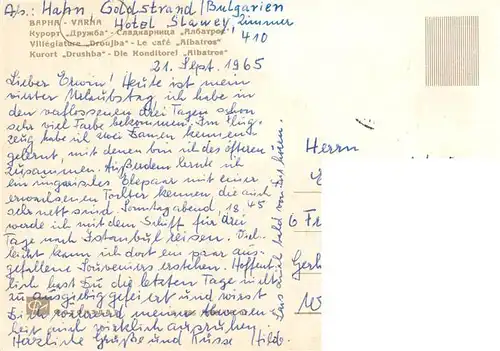 Abs.: Hahn, Goldstrand/Bulgarien
Hotel Slawey, Zimmer
410
ВАРНА - VARNA
Курорт „Дружба“ - Сладкарница „Албатрос“
Villégiature „Droujba“ - Le café „Albatros“
Kurort „Drushba“ - Die Konditorei „Albatros“
21. Sept. 1965
Lieber Erwin! Heute ist mein
vierter Urlaubstag ich habe in
den verflossenen drei Tagen schon
sehr viel Farbe bekommen. Im Flug-
zeug habe ich zwei Damen kennen-
gelernt, mit denen bin ich des öfteren
zusammen. Außerdem lernte ich
ein ungarisches Ehepaar mit einer
erwachsenen Tochter kennen, die auch
sehr nett sind. Sonntagabend, 18.45
werde ich mit dem Schiff für drei
Tage nach Istanbul reisen. Viel-
leicht kann ich dort ein paar aus-
gefallene Souvenirs erstehen. Hoffent-
lich hast Du die letzten Tage nicht
zu ausgiebig gefeiert und wirst
Dich während meiner Abwesen-
heit auch wirklich ausruhen.
Herzliche Grüße und Küsse Hilde.
Herrn
6 Fr